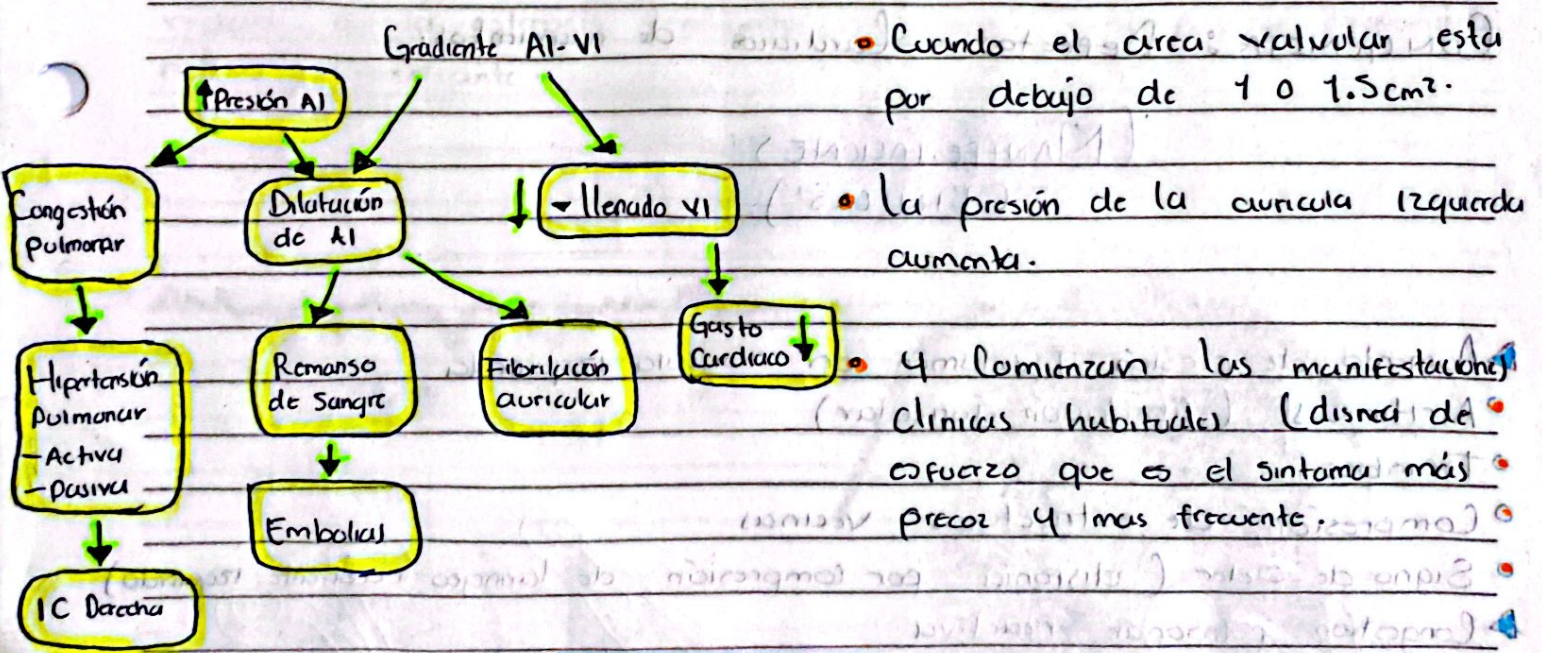 Gradiente AI-VI
↑Presión AI
Congestión
pulmonar
Dilatación
de AI
↓ llenado VI
Gasto
Cardiaco ↓
Hipertensión
Pulmonar
-Activa
-Pasiva
Remanso
de Sangre
Fibrilación
auricular
Embolias
IC Derecha
• Cuando el area valvular esta
por debajo de 1 o 1.5cm².
• La presión de la auricula izquierda
aumenta.
• Y Comienzan las manifestaciones
clinicas habituales (disnea de
esfuerzo que es el sintoma más
precoz y mas frecuente.